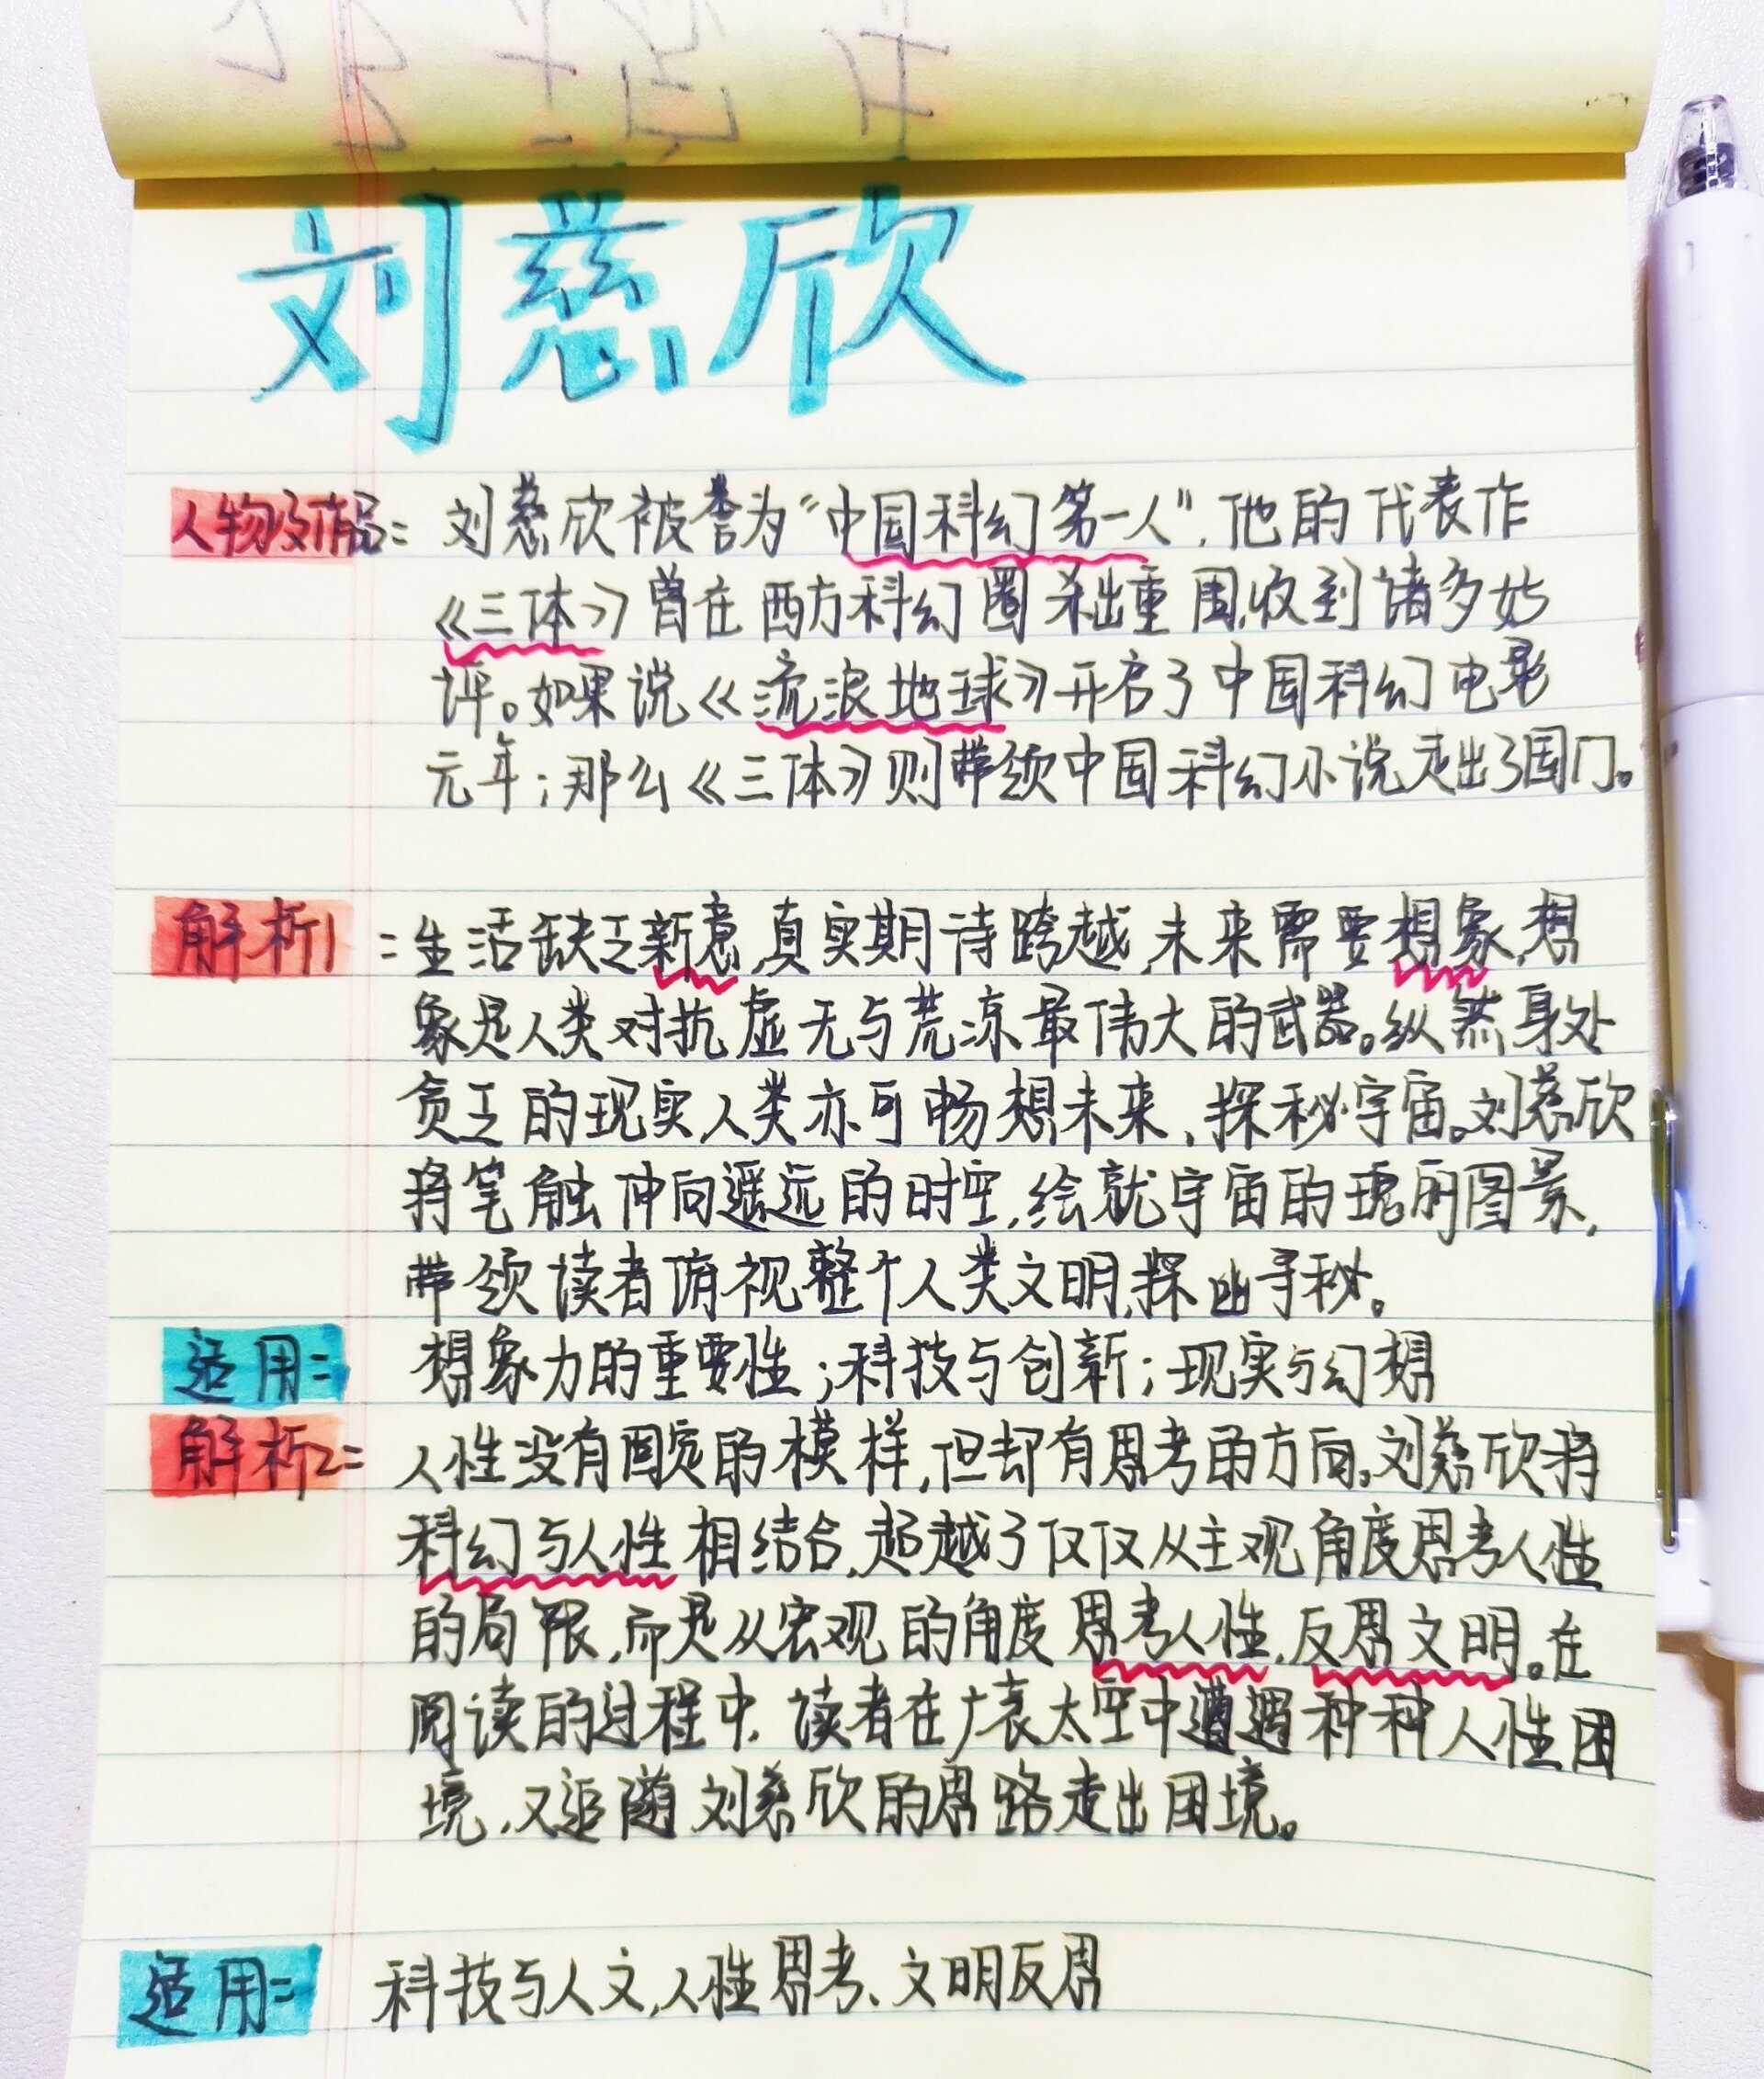 刘慈欣
人物及作品：刘慈欣被誉为“中国科幻第一人”，他的代表作
《三体》曾在西方科幻圈杀出重围，收到诸多好
评。如果说《流浪地球》开启了中国科幻电影
元年；那么《三体》则带领中国科幻小说走出了国门。
解析1：生活缺乏新意，真实期待跨越，未来需要想象，想
象是人类对抗虚无与荒凉最伟大的武器。纵然身处
贫乏的现实，人类亦可畅想未来、探秘宇宙。刘慈欣
将笔触伸向遥远的时空，绘就宇宙的瑰丽图景，
带领读者俯视整个人类文明，探幽寻秘。
适用：想象力的重要性；科技与创新；现实与幻想
解析2：人性没有固定的模样，但却有思考的方向。刘慈欣将
科幻与人性相结合，超越了仅仅从主观角度思考人性
的局限，而是从宏观的角度思考人性，反思文明。在
阅读的过程中，读者在广袤太空中遭遇种种人性困
境，又追随刘慈欣的思路走出困境。
适用：科技与人文，人性思考、文明反思